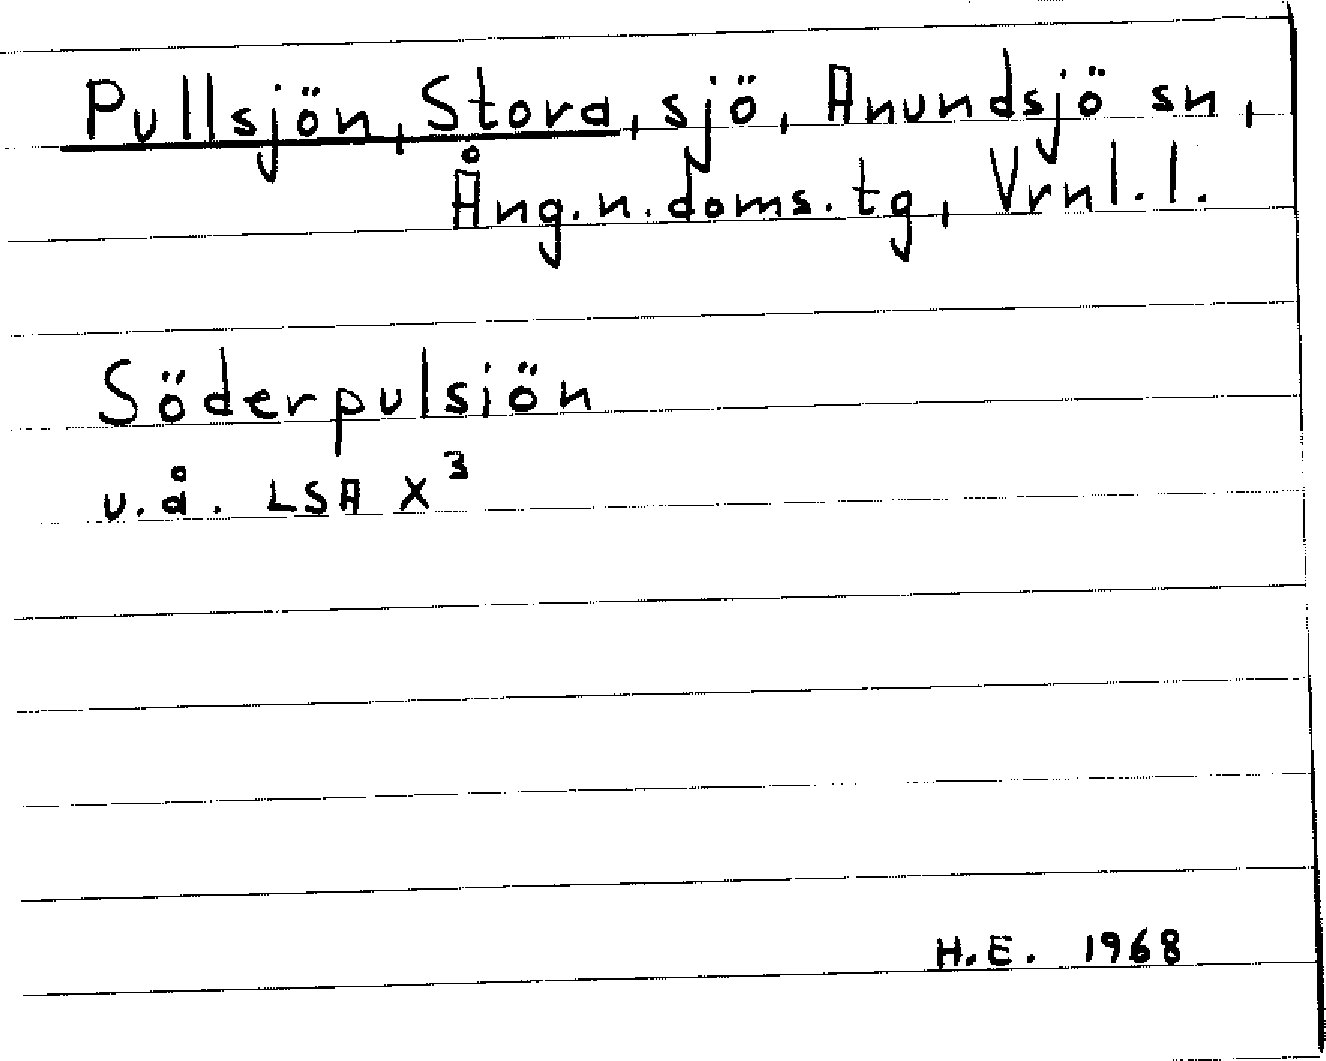 Pullsjön, Stora, sjö, Anundsjö sn,
Ång.n.doms.tg, Vrnl.l.
Söderpulsiön
u.å. LSA X³
H.E. 1968